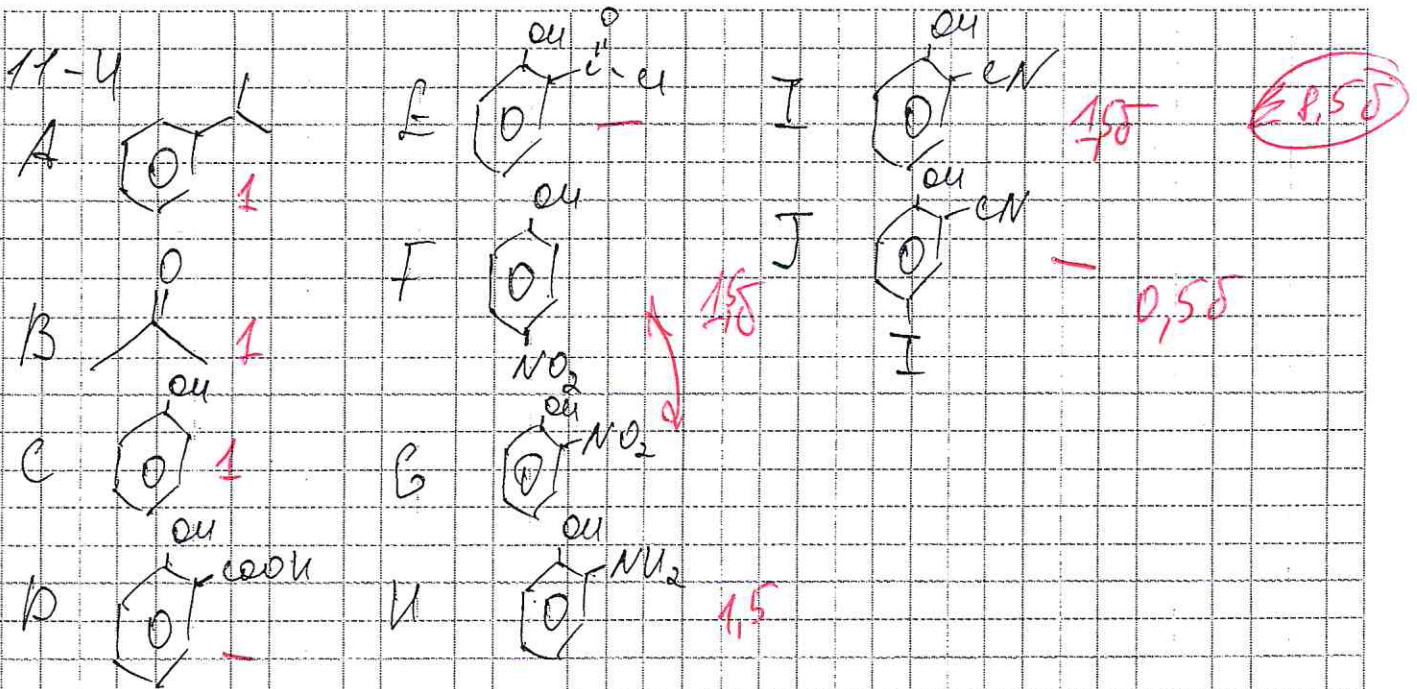 11-4
A
1
B
O
1
C
OH
1
D
OH
COOH
-
E
OH
O
C
Cl
-
F
OH
NO2
1,5б
G
OH
NO2
H
OH
NH2
1,5
I
OH
CN
1,5б
J
OH
CN
I
-
0,5б
Σ 8,5б